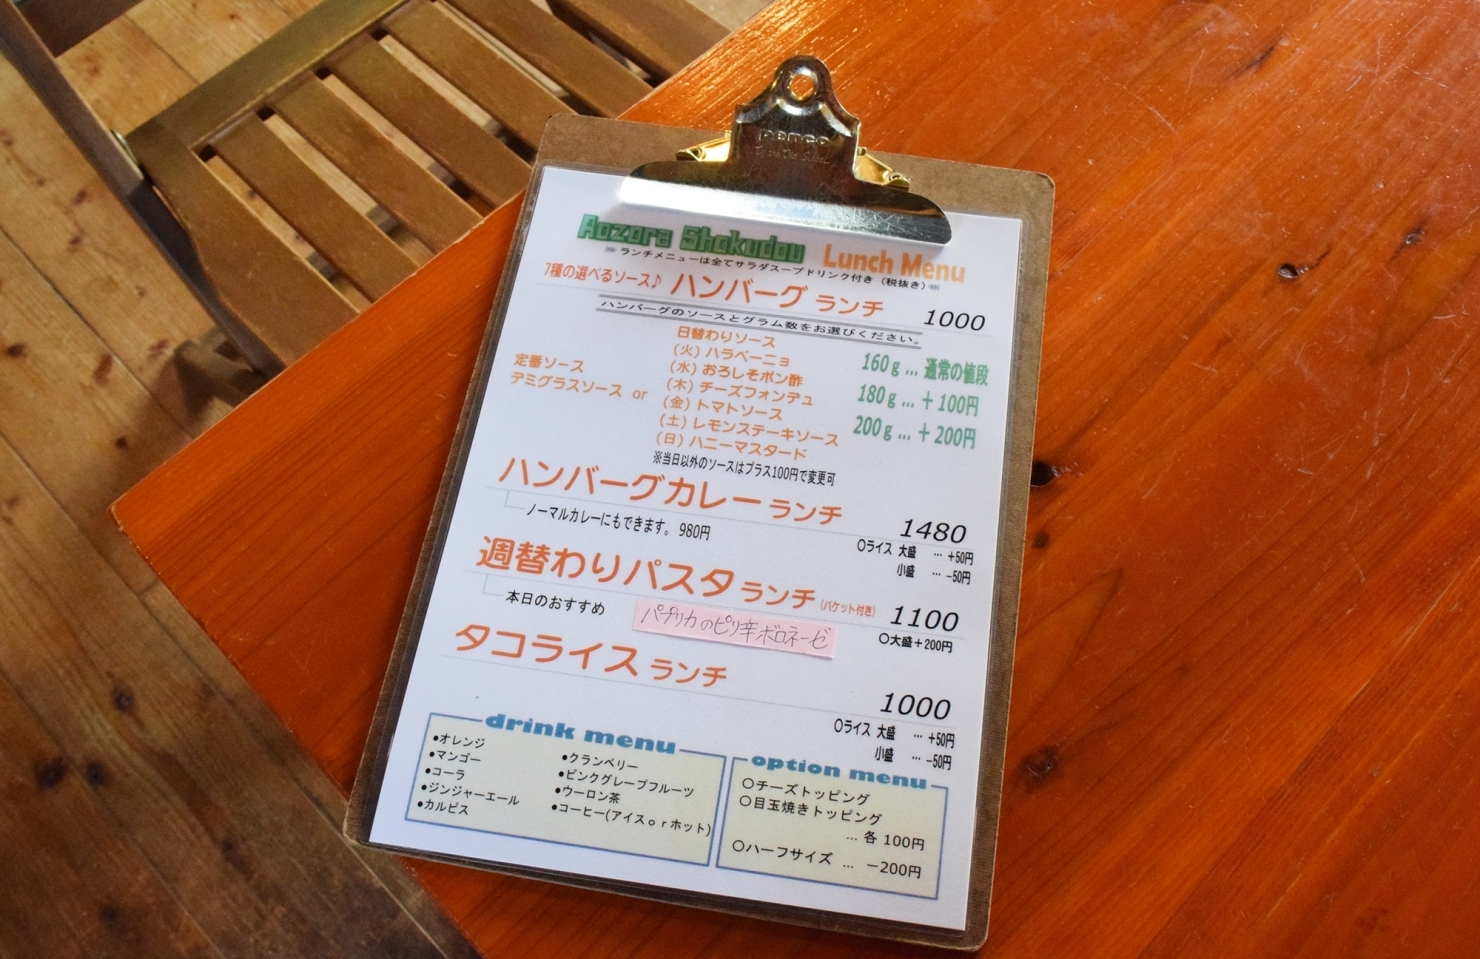 penco
Aozora Shokudou Lunch Menu
ランチメニューは全てサラダスープドリンク付き (税抜き)
7種の選べるソース♪ ハンバーグ ランチ 1000
ハンバーグのソースとグラム数をお選びください。
定番ソース
デミグラスソース or
日替わりソース
(火) ハラペーニョ
(水) おろしそポン酢
(木) チーズフォンデュ
(金) トマトソース
(土) レモンステーキソース
(日) ハニーマスタード
※当日以外のソースはプラス100円で変更可
160g … 通常の値段
180g … +100円
200g … +200円
ハンバーグカレー ランチ 1480
ノーマルカレーにもできます。 980円
○ライス 大盛 … +50円
小盛 … -50円
週替わりパスタ ランチ (バケット付き) 1100
本日のおすすめ パプリカのピリ辛ボロネーゼ
○大盛+200円
タコライス ランチ 1000
○ライス 大盛 … +50円
小盛 … -50円
drink menu
●オレンジ
●マンゴー
●コーラ
●ジンジャーエール
●カルピス
●クランベリー
●ピンクグレープフルーツ
●ウーロン茶
●コーヒー(アイスorホット)
option menu
○チーズトッピング
○目玉焼きトッピング
… 各 100円
○ハーフサイズ … −200円